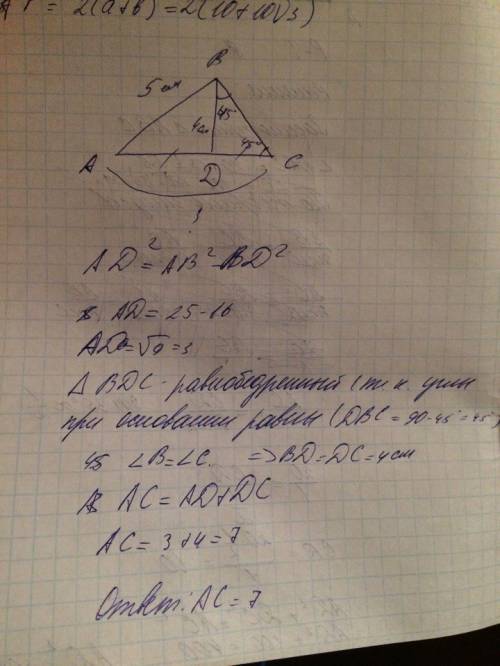 P = 2(a+b) = 2(10+10√3)
B
5 см
45°
4см
45°
A
D
C
?
AD² = AB² - BD²
AD = 25-16
AD = √9 = 3
Δ BDC - равнобедренный (т.к. углы
при основании равны (DBC = 90-45° = 45°)
45 ∠B=∠C. => BD=DC=4см
AC = AD+DC
AC = 3+4 = 7
Ответ: AC = 7